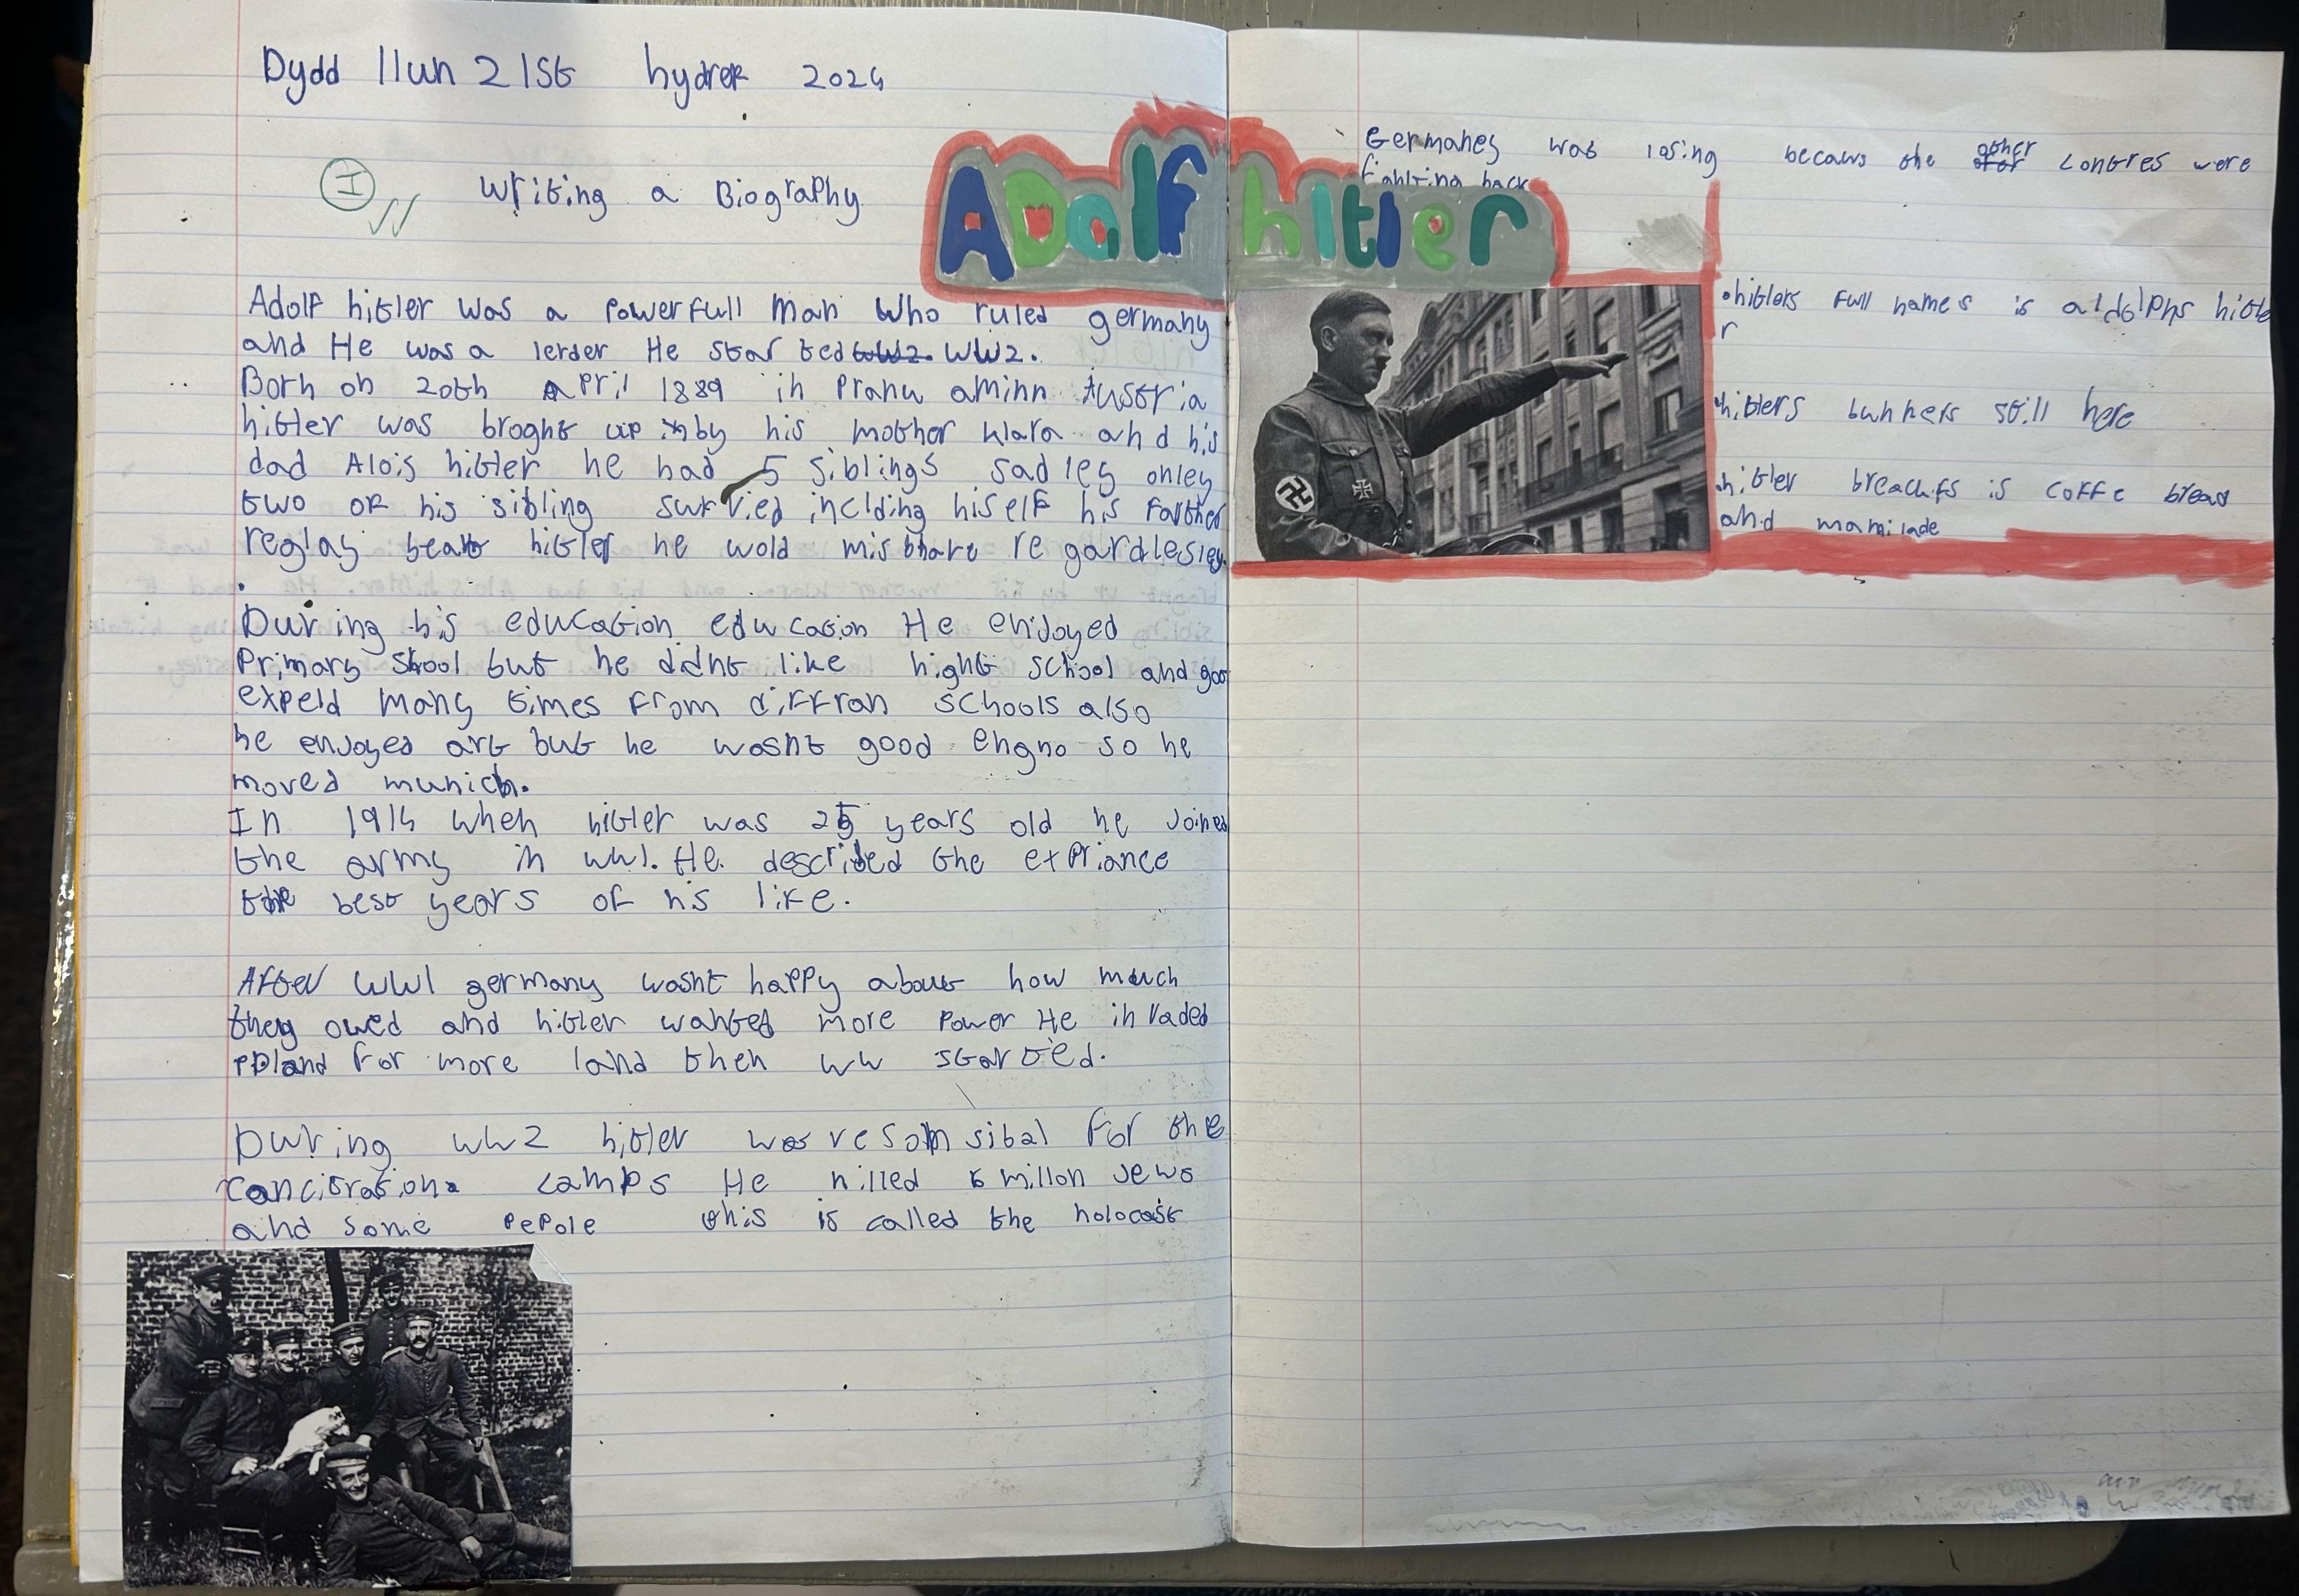 Dydd llun 21st hydref 2024
I
writing a Biography
Adolf hitler
Adolf hitler was a powerfull man who ruled germany
and He was a lerder He star ted ww2. ww2.
Born on 20th April 1889 in Pranu aminn Austria
hitler was broght up by his mother klara and his
dad Alois hitler he had 5 siblings sadley onley
two of his sibling survied inclding hiself his farther
reglay beat hitler he wold misbhare re gardlesley.
During his education education He enjoyed
Primary skool but he didnt like hight school and got
expeld many times from diffran schools also
he enjoyed art but he wasnt good engno so he
moved munich.
In 1914 when hitler was 25 years old he Joined
the army in ww1. He descrided the expriance
the best years of his life.
After WW1 germany wasnt happy about how much
they owed and hitler wanted more power He in vaded
poland for more land then ww started.
During ww2 hitler was resom sibal for the
concitration camps He killed 6 millon Jews
and some pepole this is called the holocast
Germaney was losing becaus the other contres were
fighting back
•hitlers full names is aldolphs hitle
r
•hitlers bunkers still here
•hitler breackfs is coffe bread
and mamilade